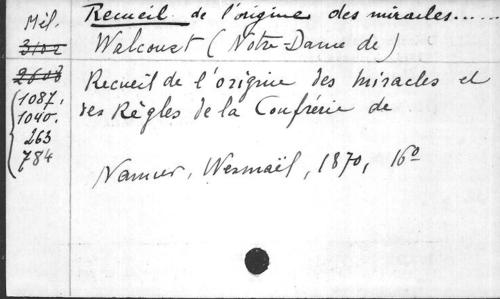 Mél. Recueil de l'origine des miracles......
3102 Walcourt (Notre-Dame de)
2608 Recueil de l'origine des miracles et
1087. des Règles de la Confrérie de
1040.
263
784
Namur, Wesmaël, 1870, 16o